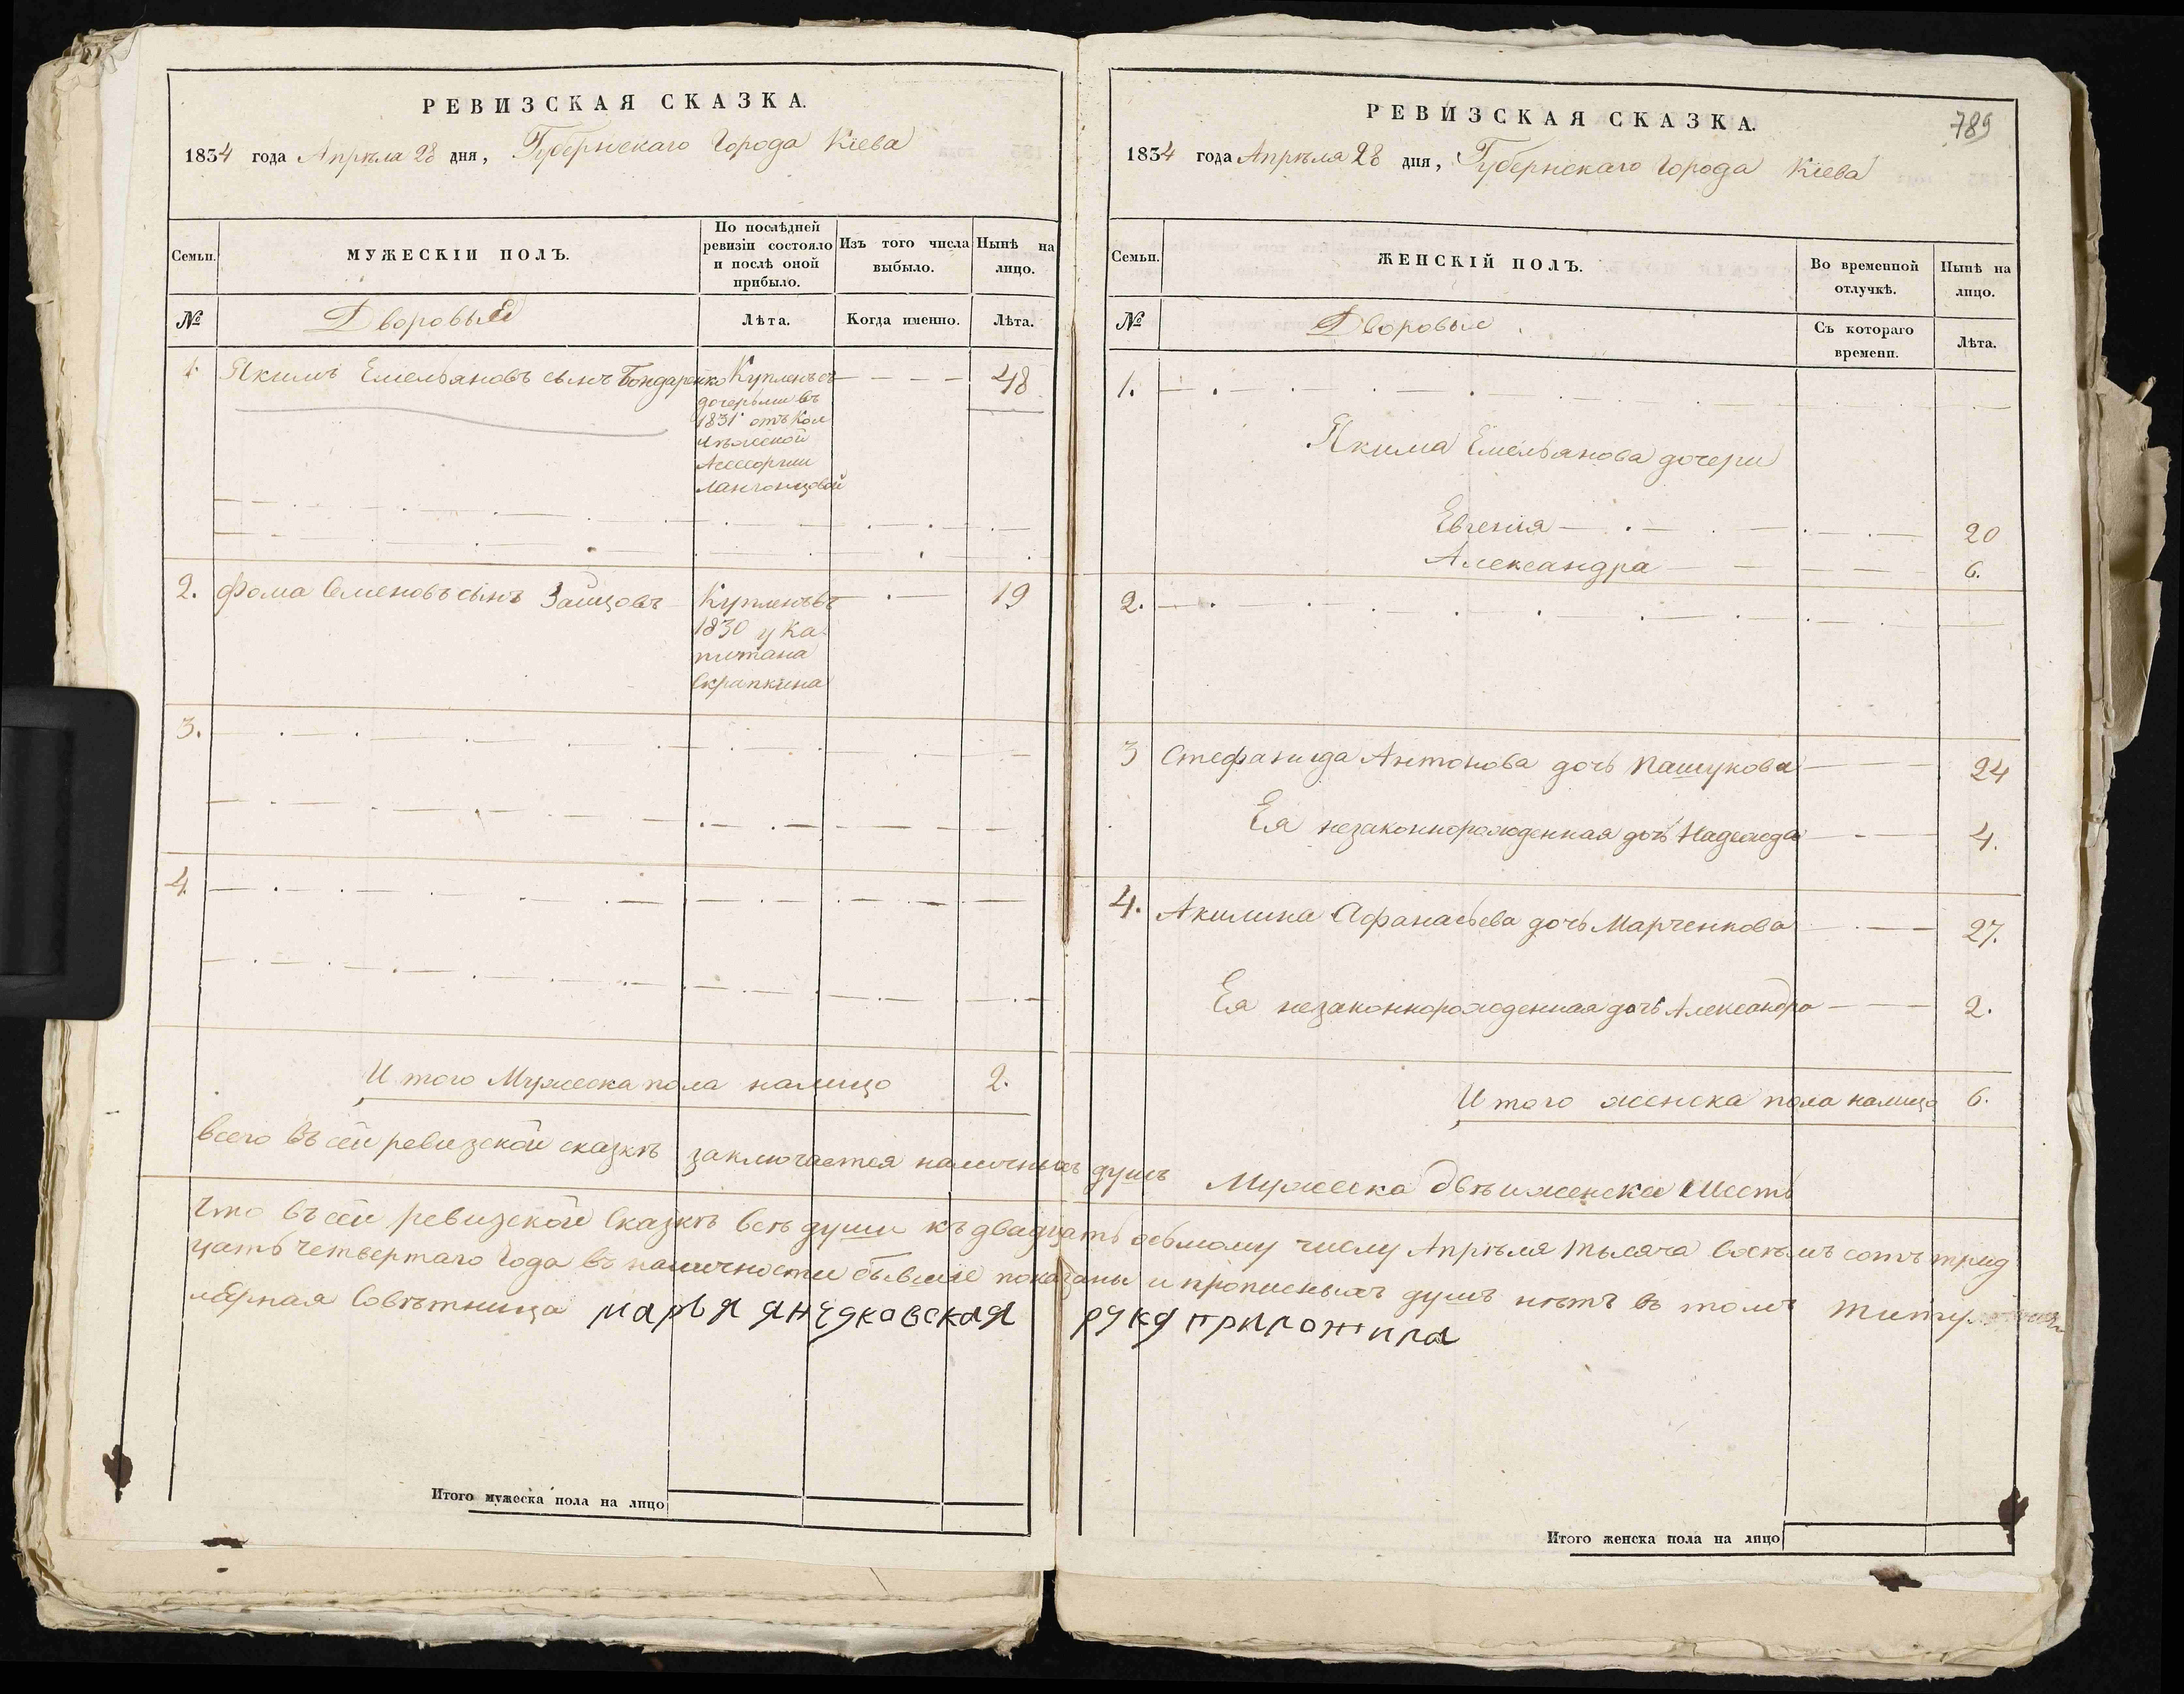 РЕВИЗСКАЯ СКАЗКА.
1834 года Апрѣля 28 дня, Губернскаго Города Кіева
Семьи.
МУЖЕСКІИ ПОЛЪ.
По послѣдней
ревизіи состояло
и послѣ оной
прибыло.
Изъ того числа
выбыло.
Нынѣ на
лицо.
№
Дворовые
Лѣта.
Когда именно.
Лѣта.
1. Якимъ Емельяновъ сынъ Бондаренко Купленъ съ 48
дочерьми въ
1831 отъ Кол
лѣжской
Ассесорши
2. Фома Семеновъ сынъ Зайцовъ Купленъ въ 19
1830 у Ка
питана
Скрапкина
3.
4
Итого Мужеска пола налицо 2.
РЕВИЗСКАЯ СКАЗКА.
789
1834 года Апрѣля 28 дня, Губернскаго Города Кіева
Семьи.
ЖЕНСКІЙ ПОЛЪ.
Во временной
отлучкѣ.
Нынѣ на
лицо.
№
Дворовые
Съ котораго
времени.
Лѣта.
1.
Якима Емельянова дочери
Евгенія 20
Александра 6.
2.
3 Стефанида Антонова дочь Пашукова 24
Ея незаконнорожденная дочь Надежда 4.
4. Акилина Афанасьева дочь Марченкова 27.
Ея незаконнорожденная дочь Александра 2.
Итого женска пола налицо 6.
Всего въ сей ревизской сказкѣ заключается наличныхъ душъ Мужеска двѣ и женска Шесть
Что въ сей ревизской Сказкѣ всѣ души къ двадцать осьмому числу Апрѣля тысяча восѣмъ сотъ трид
цать четвертаго года въ наличности бывшіе показаны и прописныхъ душъ нѣтъ въ томъ Титу
лярная Совѣтница марья янчуковская руку приложила
Итого мужеска пола на лицо
Итого женска пола на лицо